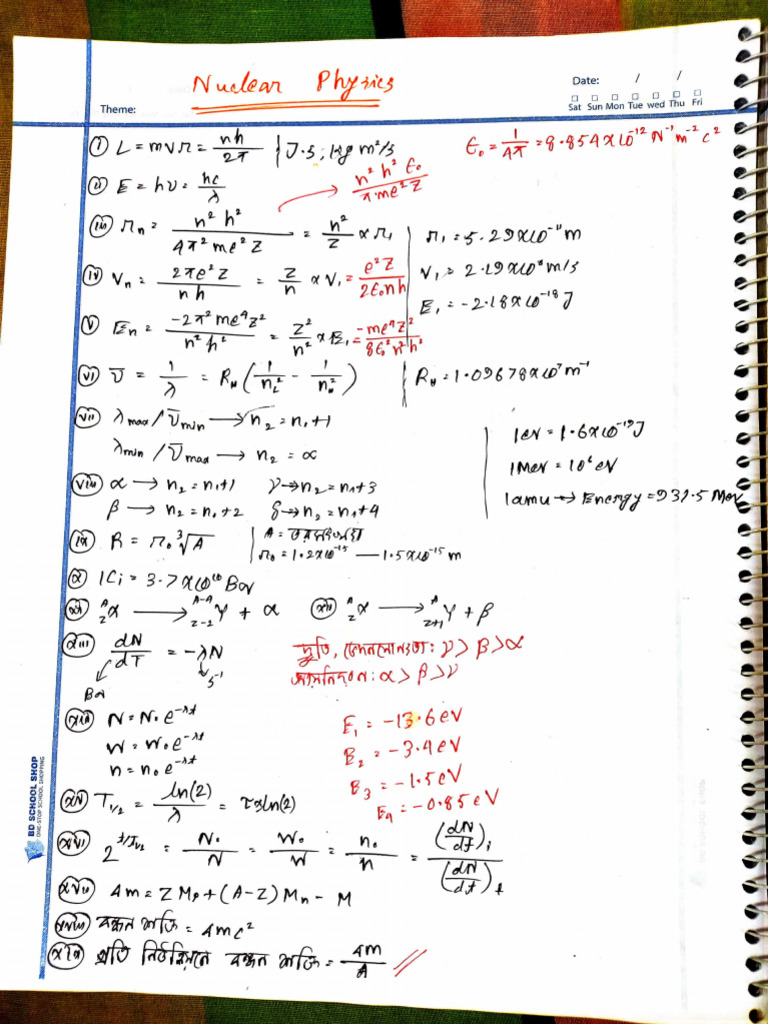 Nuclear Physics
Theme:
Date: / /
Sat Sun Mon Tue wed Thu Fri
(i) L = mvr = nh/2π | J.s ; kg m²/s
ε₀ = 1/4π = 8.854×10⁻¹² N⁻¹ m⁻² c²
(ii) E = hυ = hc/λ
n²h²ε₀/π.me²Z
(iii) rₙ = n²h²/4π²me²Z = n²/Z × r₁
r₁ = 5.29×10⁻¹¹ m
(iv) Vₙ = 2πe²Z/nh = Z/n × V₁ = e²Z/2ε₀nh
V₁ = 2.19×10⁶ m/s
(v) Eₙ = -2π²me⁴Z²/n²h² = Z²/n² × E₁ = -me⁴Z²/8ε₀²n²h²
E₁ = -2.18×10⁻¹⁸ J
(vi) ῡ = 1/λ = R_H (1/n_L² - 1/n_H²)
R_H = 1.09678×10⁷ m⁻¹
(vii) λmax/ῡmin → n₂ = n₁+1
λmin/ῡmax → n₂ = ∝
1eV = 1.6×10⁻¹⁹ J
1MeV = 10⁶ eV
1amu → Energy = 931.5 MeV
(viii) α → n₂ = n₁+1 γ → n₂ = n₁+3
β → n₂ = n₁+2 δ → n₂ = n₁+4
(ix) R = r₀ ∛A | A = ভরসংখ্যা
r₀ = 1.2×10⁻¹⁵ — 1.5×10⁻¹⁵ m
(x) 1Ci = 3.7×10¹⁰ Bq
(xi) ᴬ_Z X → ᴬ⁻⁴_Z-2 Y + α (xii) ᴬ_Z X → ᴬ_Z+1 Y + β
(xiii) dN/dT = -λN
Bq s⁻¹
দ্রুতি, ভেদনযোগ্যতা: γ > β > α
আয়নিকরণ: α > β > γ
(xiv) N = N₀e^-λt
W = W₀e^-λt
n = n₀e^-λt
E₁ = -13.6 eV
E₂ = -3.4 eV
E₃ = -1.5 eV
E₄ = -0.85 eV
(xv) T₁/₂ = ln(2)/λ = τ×ln(2)
(xvi) 2^t/T₁/₂ = N₀/N = W₀/W = n₀/n = (dN/dt)ᵢ/(dN/dt)f
(xvii) Δm = ZMp + (A-Z)Mn - M
(xviii) বন্ধন শক্তি = Δmc²
(xix) প্রতি নিউক্লিয়নে বন্ধন শক্তি = Δm/A
BD SCHOOL SHOP
ONE-STOP SCHOOL SHOPPING